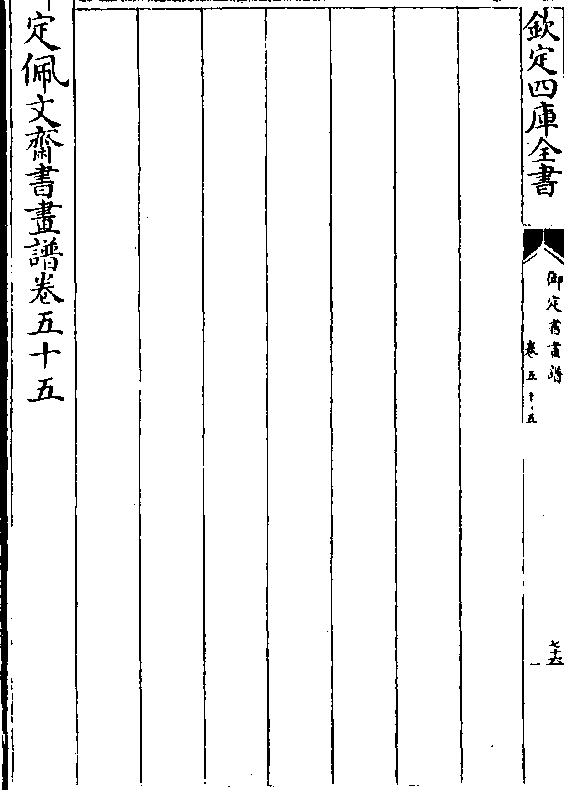 欽定四庫全書
御定書畫譜
卷五十五
七十六
定佩文齋書畫譜卷五十五